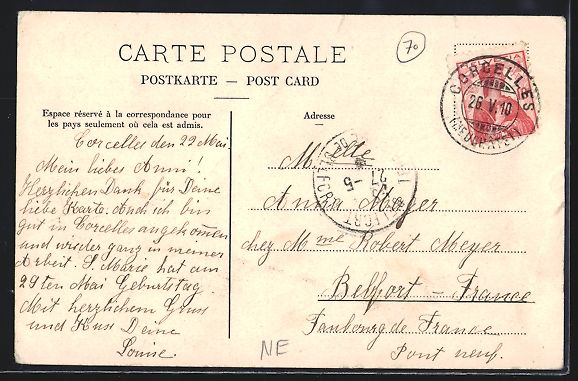 CARTE POSTALE
70
POSTKARTE — POST CARD
Espace réservé à la correspondance pour
les pays seulement où cela est admis.
Adresse
CORCELLES
26.V.10
(NEUCHÂTEL)
Corcelles den 22 Mai.
Mein liebes Anni!
Herzlichen Dank für Deine
liebe Karte. Auch ich bin
gut in Corcelles angekommen
und wieder ganz in meiner
Arbeit. S. Marie hat am
29ten Mai Geburtstag.
Mit herzlichem Gruss
und Kuss Deine
Louise.
Melle
Anna Meyer
chez Mme Robert Meyer
Belfort - France
Faubourg de France
Pont neuf.
BELFORT
27 - 5
NE